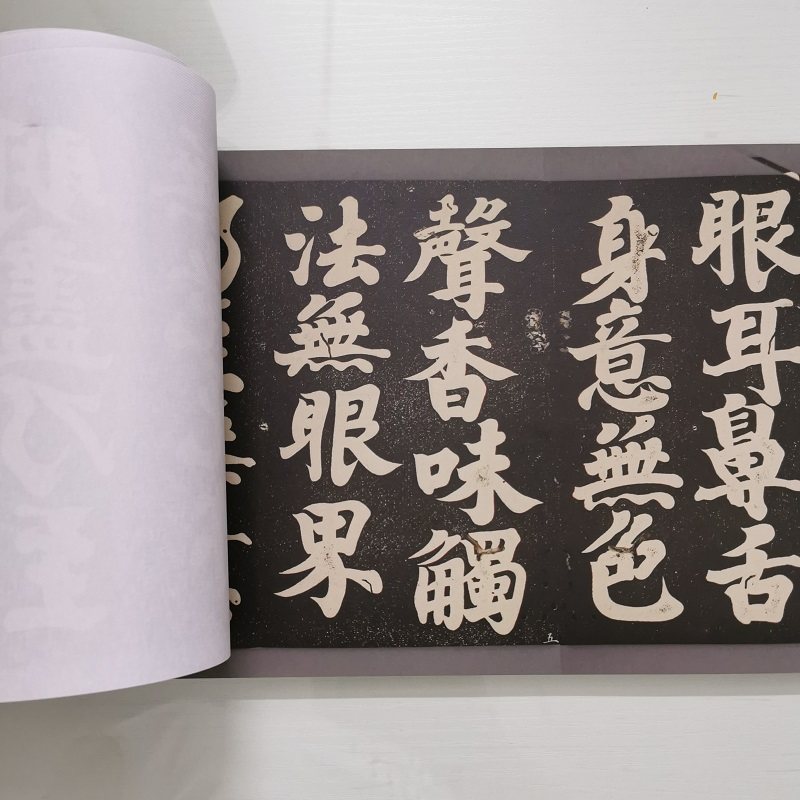 眼耳鼻舌
身意無色
聲香味觸
法無眼界
五